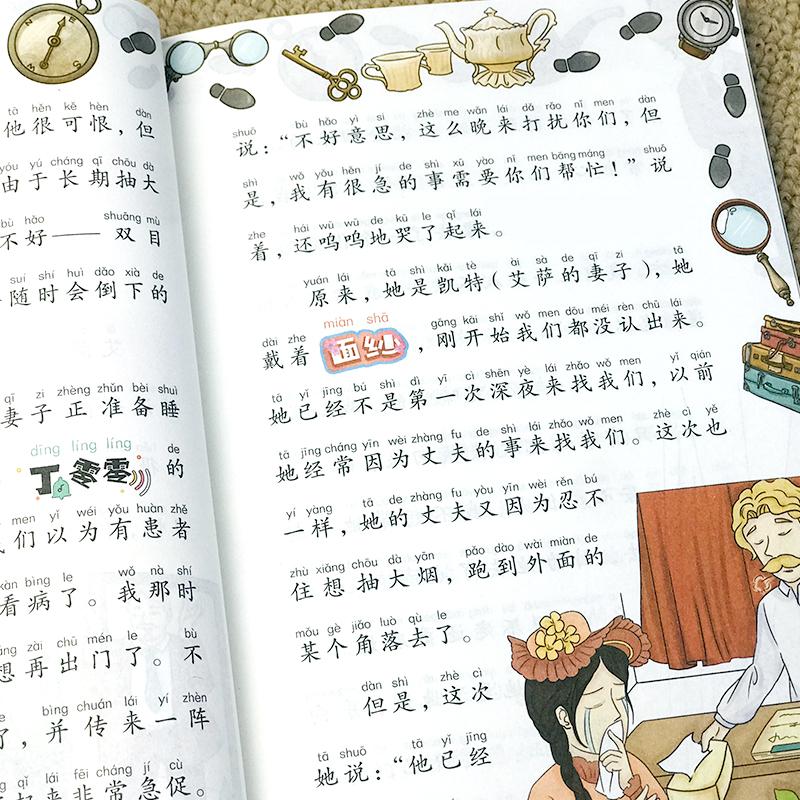 tā hěn kě hèn, dàn
他很可恨，但
yóu yú cháng qī chōu dà
由于长期抽大
bù hǎo shuāng mù
不好——双目
suí shí huì dǎo xià de
随时会倒下的
qī zi zhèng zhǔn bèi shuì
妻子正准备睡
dīng líng líng de
丁零零的
men yǐ wéi yǒu huàn zhě
们以为有患者
kàn bìng le wǒ nà shí
看病了。我那时
xiǎng zài chū mén le bù
想再出门了。不
le bìng chuán lái yí zhèn
了，并传来一阵
qǐ lái fēi cháng jí cù
起来非常急促。
shuō bù hǎo yì si zhè me wǎn lái dǎ rǎo nǐ men dàn
说：“不好意思，这么晚来打扰你们，但
shì wǒ yǒu hěn jí de shì xū yào nǐ men bāng máng shuō
是，我有很急的事需要你们帮忙！”说
zhe hái wū wū de kū le qǐ lái
着，还呜呜地哭了起来。
yuán lái tā shì kǎi tè ài sà de qī zi tā
原来，她是凯特（艾萨的妻子），她
dài zhe miàn shā gāng kāi shǐ wǒ men dōu méi rèn chū lái
戴着面纱，刚开始我们都没认出来。
tā yǐ jīng bú shì dì yī cì shēn yè lái zhǎo wǒ men yǐ qián
她已经不是第一次深夜来找我们，以前
tā jīng cháng yīn wèi zhàng fu de shì lái zhǎo wǒ men zhè cì yě
她经常因为丈夫的事来找我们。这次也
yí yàng tā de zhàng fu yòu yīn wèi rěn bú
一样，她的丈夫又因为忍不
zhù xiǎng chōu dà yān pǎo dào wài miàn de
住想抽大烟，跑到外面的
mǒu gè jiǎo luò qù le
某个角落去了。
dàn shì zhè cì
但是，这次
tā shuō tā yǐ jīng
她说：“他已经